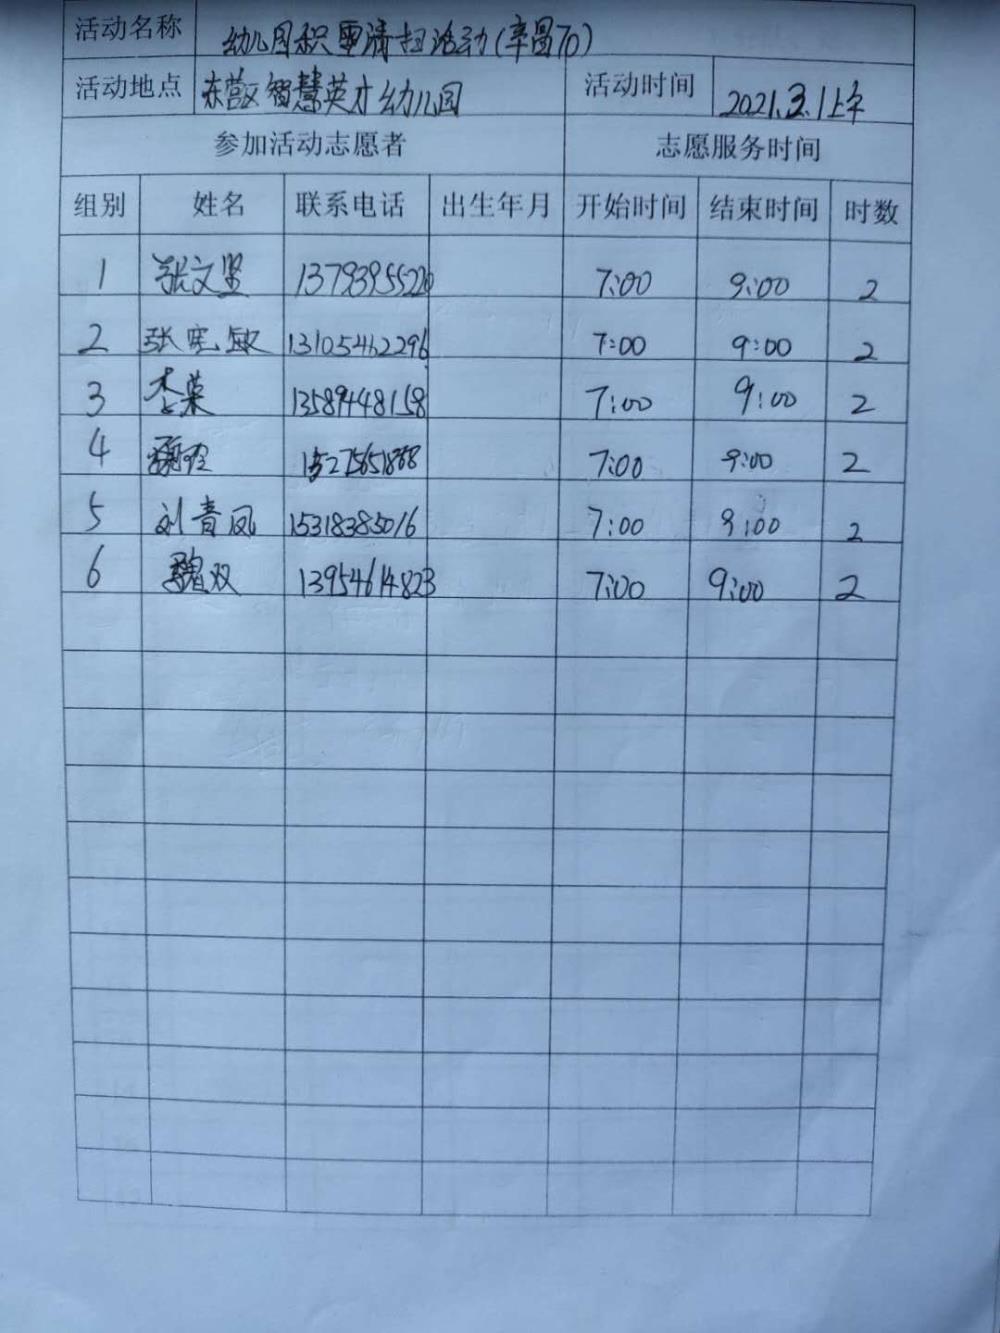 活动名称 幼儿园积雪清扫活动(辛昌70)
活动地点 东营区智慧英才幼儿园 活动时间 2021.3.1上午
参加活动志愿者 志愿服务时间
组别 姓名 联系电话 出生年月 开始时间 结束时间 时数
1 张文坚 13793955220 7:00 9:00 2
2 张宪敏 13105462296 7:00 9:00 2
3 李荣 13589448158 7:00 9:00 2
4 7:00 9:00 2
5 刘青凤 15318385016 7:00 9:00 2
6 魏双 13954614823 7:00 9:00 2